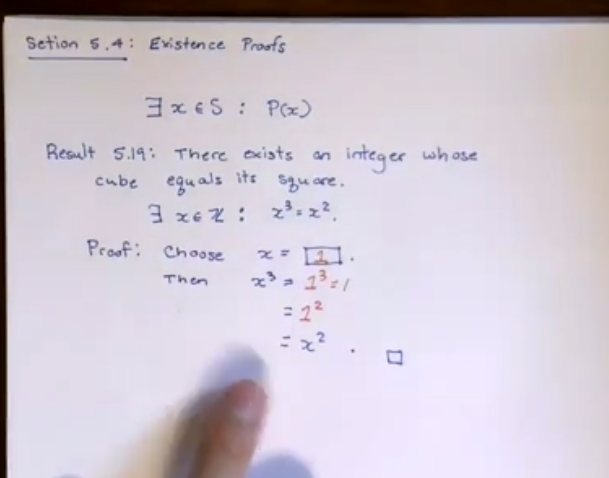 Setion 5.4: Existence Proofs
∃ x ∈ S : P(x)
Result 5.19: There exists an integer whose
cube equals its square.
∃ x ∈ ℤ : x³ = x².
Proof: Choose x = 1.
Then x³ = 1³ = 1
= 1²
= x². □